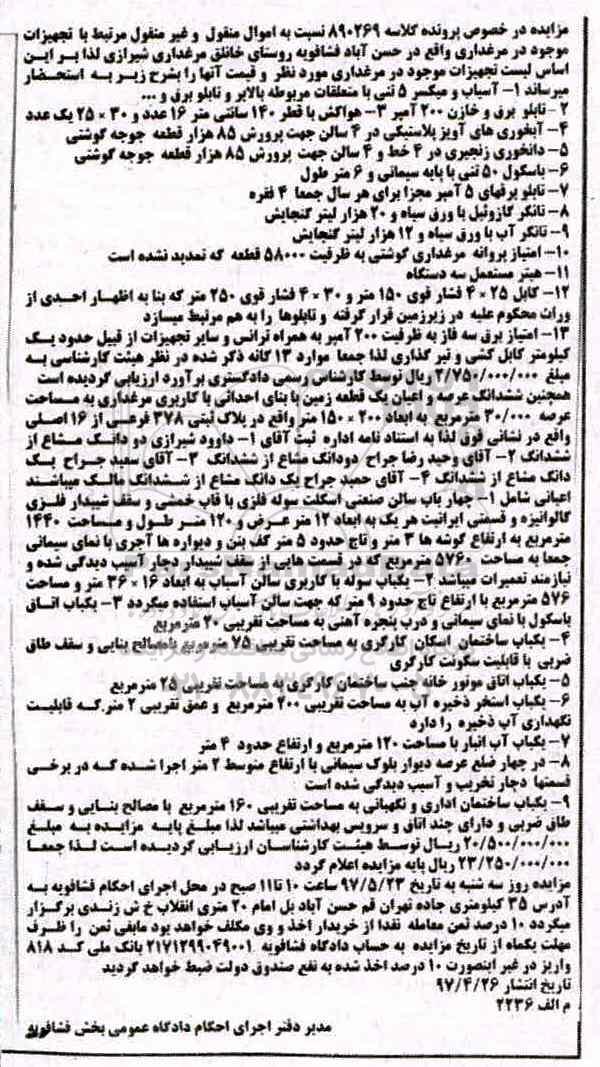 مزایده در خصوص پرونده کلاسه ۸۹۰۲۶۹ نسبت به اموال منقول و غیر منقول مرتبط با تجهیزات
موجود در مرغداری واقع در حسن آباد فشافویه روستای خانلق مرغداری شیرازی لذا بر این
اساس لیست تجهیزات موجود در مرغداری مورد نظر و قیمت آنها را بشرح زیر به استحضار
میرساند ۱- آسیاب و میکسر ۵ تنی با متعلقات مربوطه بالابر و تابلو برق و ...
۲- تابلو برق و خازن ۲۰۰ آمپر ۳- هواکش با قطر ۱۴۰ سانتی متر ۱۶ عدد و ۳۰ × ۲۵ یک عدد
۴- آبخوری های آویز پلاستیکی در ۴ سالن جهت پرورش ۸۵ هزار قطعه جوجه گوشتی
۵- دانخوری زنجیری در ۴ خط و ۴ سالن جهت پرورش ۸۵ هزار قطعه جوجه گوشتی
۶- باسکول ۵۰ تنی با پایه سیمانی و ۶ متر طول
۷- تابلو برقهای ۵ آمپر مجزا برای هر سال جمعا ۴ فقره
۸- تانکر گازوئیل با ورق سیاه و ۲۰ هزار لیتر گنجایش
۹- تانکر آب با ورق سیاه و ۱۲ هزار لیتر گنجایش
۱۰- امتیاز پروانه مرغداری گوشتی به ظرفیت ۵۸۰۰۰ قطعه که تمدید نشده است
۱۱- هیتر مستعمل سه دستگاه
۱۲- کابل ۲۵ × ۴ فشار قوی ۱۵۰ متر و ۳۰ × ۴ فشار قوی ۲۵۰ متر که بنا به اظهار احدی از
وراث محکوم علیه در زیرزمین قرار گرفته و تابلوها را به هم مرتبط میسازد
۱۳- امتیاز برق سه فاز به ظرفیت ۲۰۰ آمپر به همراه ترانس و سایر تجهیزات از قبیل حدود یک
کیلومتر کابل کشی و تیر گذاری لذا جمعا موارد ۱۳ گانه ذکر شده در نظر هیئت کارشناسی به
مبلغ ۲/۷۵۰/۰۰۰/۰۰۰ ریال توسط کارشناس رسمی دادگستری برآورد ارزیابی گردیده است
همچنین ششدانگ عرصه و اعیان یک قطعه زمین با بنای احداثی با کاربری مرغداری به مساحت
عرصه ۳۰/۰۰۰ مترمربع به ابعاد ۲۰۰ × ۱۵۰ متر واقع در پلاک ثبتی ۳۷۸ فرعی از ۱۶ اصلی
واقع در نشانی فوق لذا به استناد نامه اداره ثبت آقای ۱- داوود شیرازی دو دانگ مشاع از
ششدانگ ۲- آقای وحید رضا جراح دودانگ مشاع از ششدانگ ۳- آقای سعید جراح یک
دانگ مشاع از ششدانگ ۴- آقای حمید جراح یک دانگ مشاع از ششدانگ مالک میباشند
اعیانی شامل ۱- چهار باب سالن صنعتی اسکلت سوله فلزی با قاب خمشی و سقف شیبدار فلزی
گالوانیزه و قسمتی ایرانیت هر یک به ابعاد ۱۲ متر عرض و ۱۲۰ متر طول و مساحت ۱۴۴۰
مترمربع به ارتفاع گوشه ها ۳ متر و تاج حدود ۵ متر کف بتن و دیواره ها آجری با نمای سیمانی
جمعا به مساحت ۵۷۶۰ مترمربع که در قسمت هایی از سقف شیبدار دچار آسیب دیدگی شده و
نیازمند تعمیرات میباشد ۲- یکباب سوله با کاربری سالن آسیاب به ابعاد ۱۶ × ۳۶ متر و مساحت
۵۷۶ مترمربع با ارتفاع تاج حدود ۹ متر که جهت سالن آسیاب استفاده میگردد ۳- یکباب اتاق
باسکول با نمای سیمانی و درب پنجره آهنی به مساحت تقریبی ۲۰ مترمربع
۴- یکباب ساختمان اسکان کارگری به مساحت تقریبی ۷۵ مترمربع بامصالح بنایی و سقف طاق
ضربی با قابلیت سکونت کارگری
۵- یکباب اتاق موتور خانه جنب ساختمان کارگری به مساحت تقریبی ۲۵ مترمربع
۶- یکباب استخر ذخیره آب به مساحت تقریبی ۲۰۰ مترمربع و عمق تقریبی ۲ متر که قابلیت
نگهداری آب ذخیره را دارد
۷- یکباب آب انبار با مساحت ۱۲۰ مترمربع و ارتفاع حدود ۴ متر
۸- در چهار ضلع عرصه دیوار بلوک سیمانی با ارتفاع متوسط ۲ متر اجرا شده که در برخی
قسمتها دچار تخریب و آسیب دیدگی شده است
۹- یکباب ساختمان اداری و نگهبانی به مساحت تقریبی ۱۶۰ مترمربع با مصالح بنایی و سقف
طاق ضربی و دارای چند اتاق و سرویس بهداشتی میباشد لذا مبلغ پایه مزایده به مبلغ
۲۰/۵۰۰/۰۰۰/۰۰۰ ریال توسط هیئت کارشناسان ارزیابی گردیده است لذا جمعا
۲۳/۲۵۰/۰۰۰/۰۰۰ ریال پایه مزایده اعلام گردد
مزایده روز سه شنبه به تاریخ ۹۷/۵/۲۳ ساعت ۱۰ تا۱۱ صبح در محل اجرای احکام فشافویه به
آدرس ۳۵ کیلومتری جاده تهران قم حسن آباد بل امام ۲۰ متری انقلاب خ ش زندی برگزار
میگردد ۱۰ درصد ثمن معامله نقدا از خریدار اخذ و وی مکلف خواهد بود مابقی ثمن را ظرف
مهلت یکماه از تاریخ مزایده به حساب دادگاه فشافویه ۲۱۷۱۲۹۹۰۴۹۰۰۱ بانک ملی کد ۸۱۸
واریز در غیر اینصورت ۱۰ درصد اخذ شده به نفع صندوق دولت ضبط خواهد گردید
تاریخ انتشار ۹۷/۴/۲۶
م الف ۲۲۳۶
مدیر دفتر اجرای احکام دادگاه عمومی بخش فشافویه